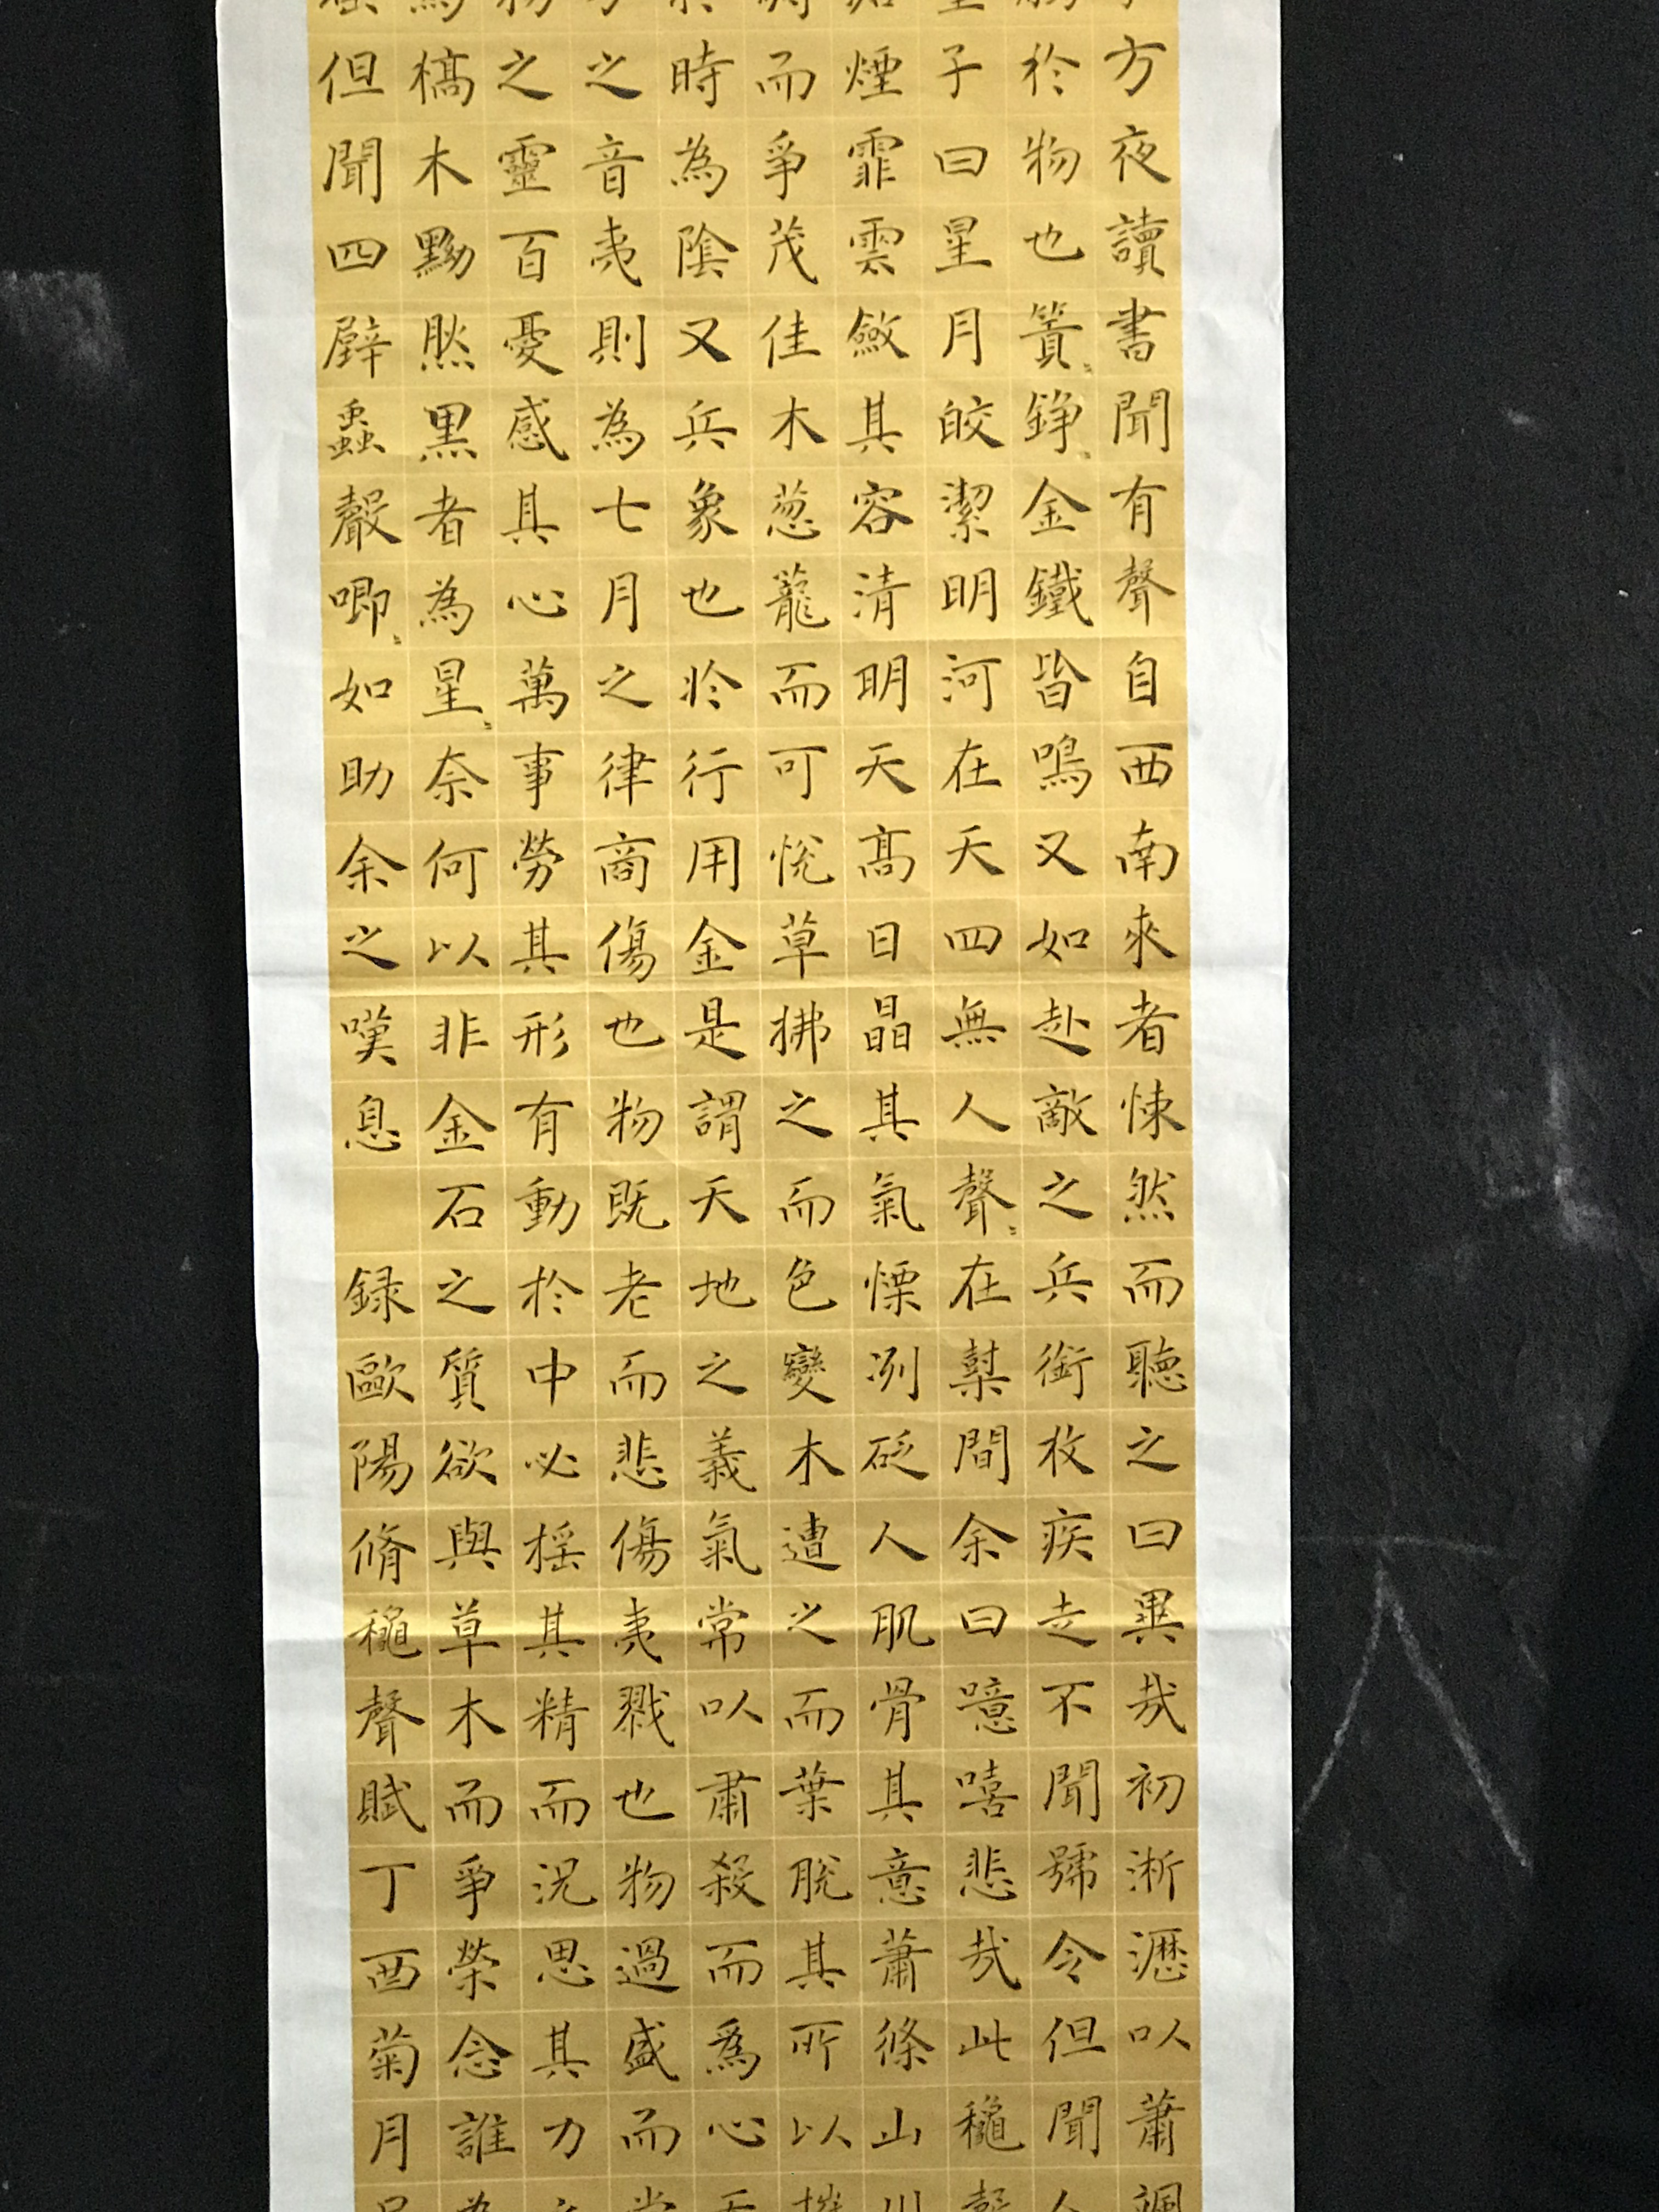 方夜讀書聞有聲自西南來者悚然而聽之曰異哉初淅瀝以蕭颯
於物也鏦〻錚〻金鐵皆鳴又如赴敵之兵銜枚疾走不聞號令但聞人
子曰星月皎潔明河在天四無人聲〻在樹間余曰噫嘻悲哉此龝聲
煙霏雲斂其容清明天高日晶其氣慄冽砭人肌骨其意蕭條山川
而爭茂佳木葱籠而可悅草拂之而色變木遭之而葉脫其所以摧
時為陰又兵象也於行用金是謂天地之義氣常以肅殺而為心天
之音夷則為七月之律商傷也物既老而悲傷夷戮也物過盛而當
之靈百憂感其心萬事勞其形有動於中必搖其精而況思其力
槁木黝然黑者為星〻奈何以非金石之質欲與草木而爭榮念誰為
但聞四壁蟲聲唧〻如助余之嘆息 録歐陽脩龝聲賦丁酉菊月